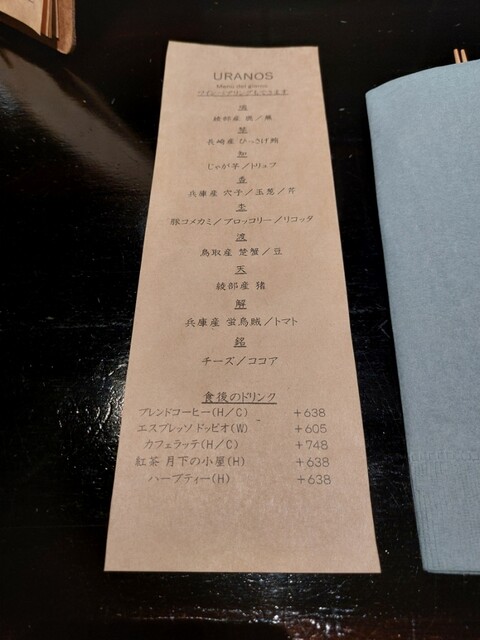 URANOS
Menu del giorno
ワインペアリングもできます
綾部産 鹿／蕪
長崎産 ひっさげ鮪
じゃが芋／トリュフ
香
兵庫産 穴子／玉葱／芹
杢
豚コメカミ／ブロッコリー／リコッタ
渡
鳥取産 楚蟹／豆
天
綾部産 猪
解
兵庫産 蛍烏賊／トマト
銘
チーズ／ココア
食後のドリンク
ブレンドコーヒー(H／C) +638
エスプレッソ ドッピオ(W) +605
カフェラッテ(H／C) +748
紅茶 月下の小屋(H) +638
ハーブティー(H) +638